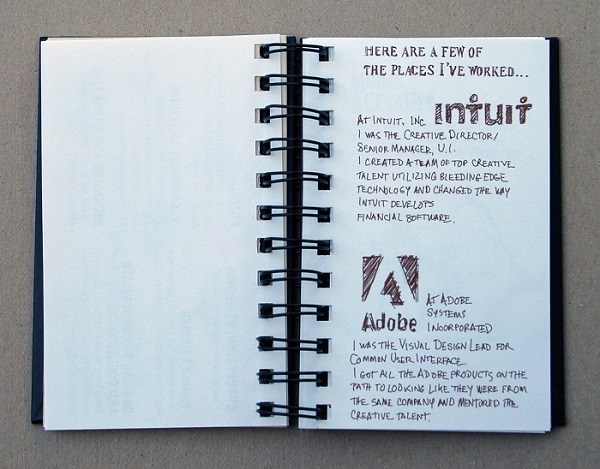 HERE ARE A FEW OF
THE PLACES I'VE WORKED...
INTUIT
AT INTUIT, INC.
I WAS THE CREATIVE DIRECTOR/
SENIOR MANAGER, U.I.
I CREATED A TEAM OF TOP CREATIVE
TALENT UTILIZING BLEEDING-EDGE
TECHNOLOGY AND CHANGED THE WAY
INTUIT DEVELOPS
FINANCIAL SOFTWARE.
Adobe
AT ADOBE
SYSTEMS
INCORPORATED
I WAS THE VISUAL DESIGN LEAD FOR
COMMON USER INTERFACE.
I GOT ALL THE ADOBE PRODUCTS ON THE
PATH TO LOOKING LIKE THEY WERE FROM
THE SAME COMPANY AND MENTORED THE
CREATIVE TALENT.